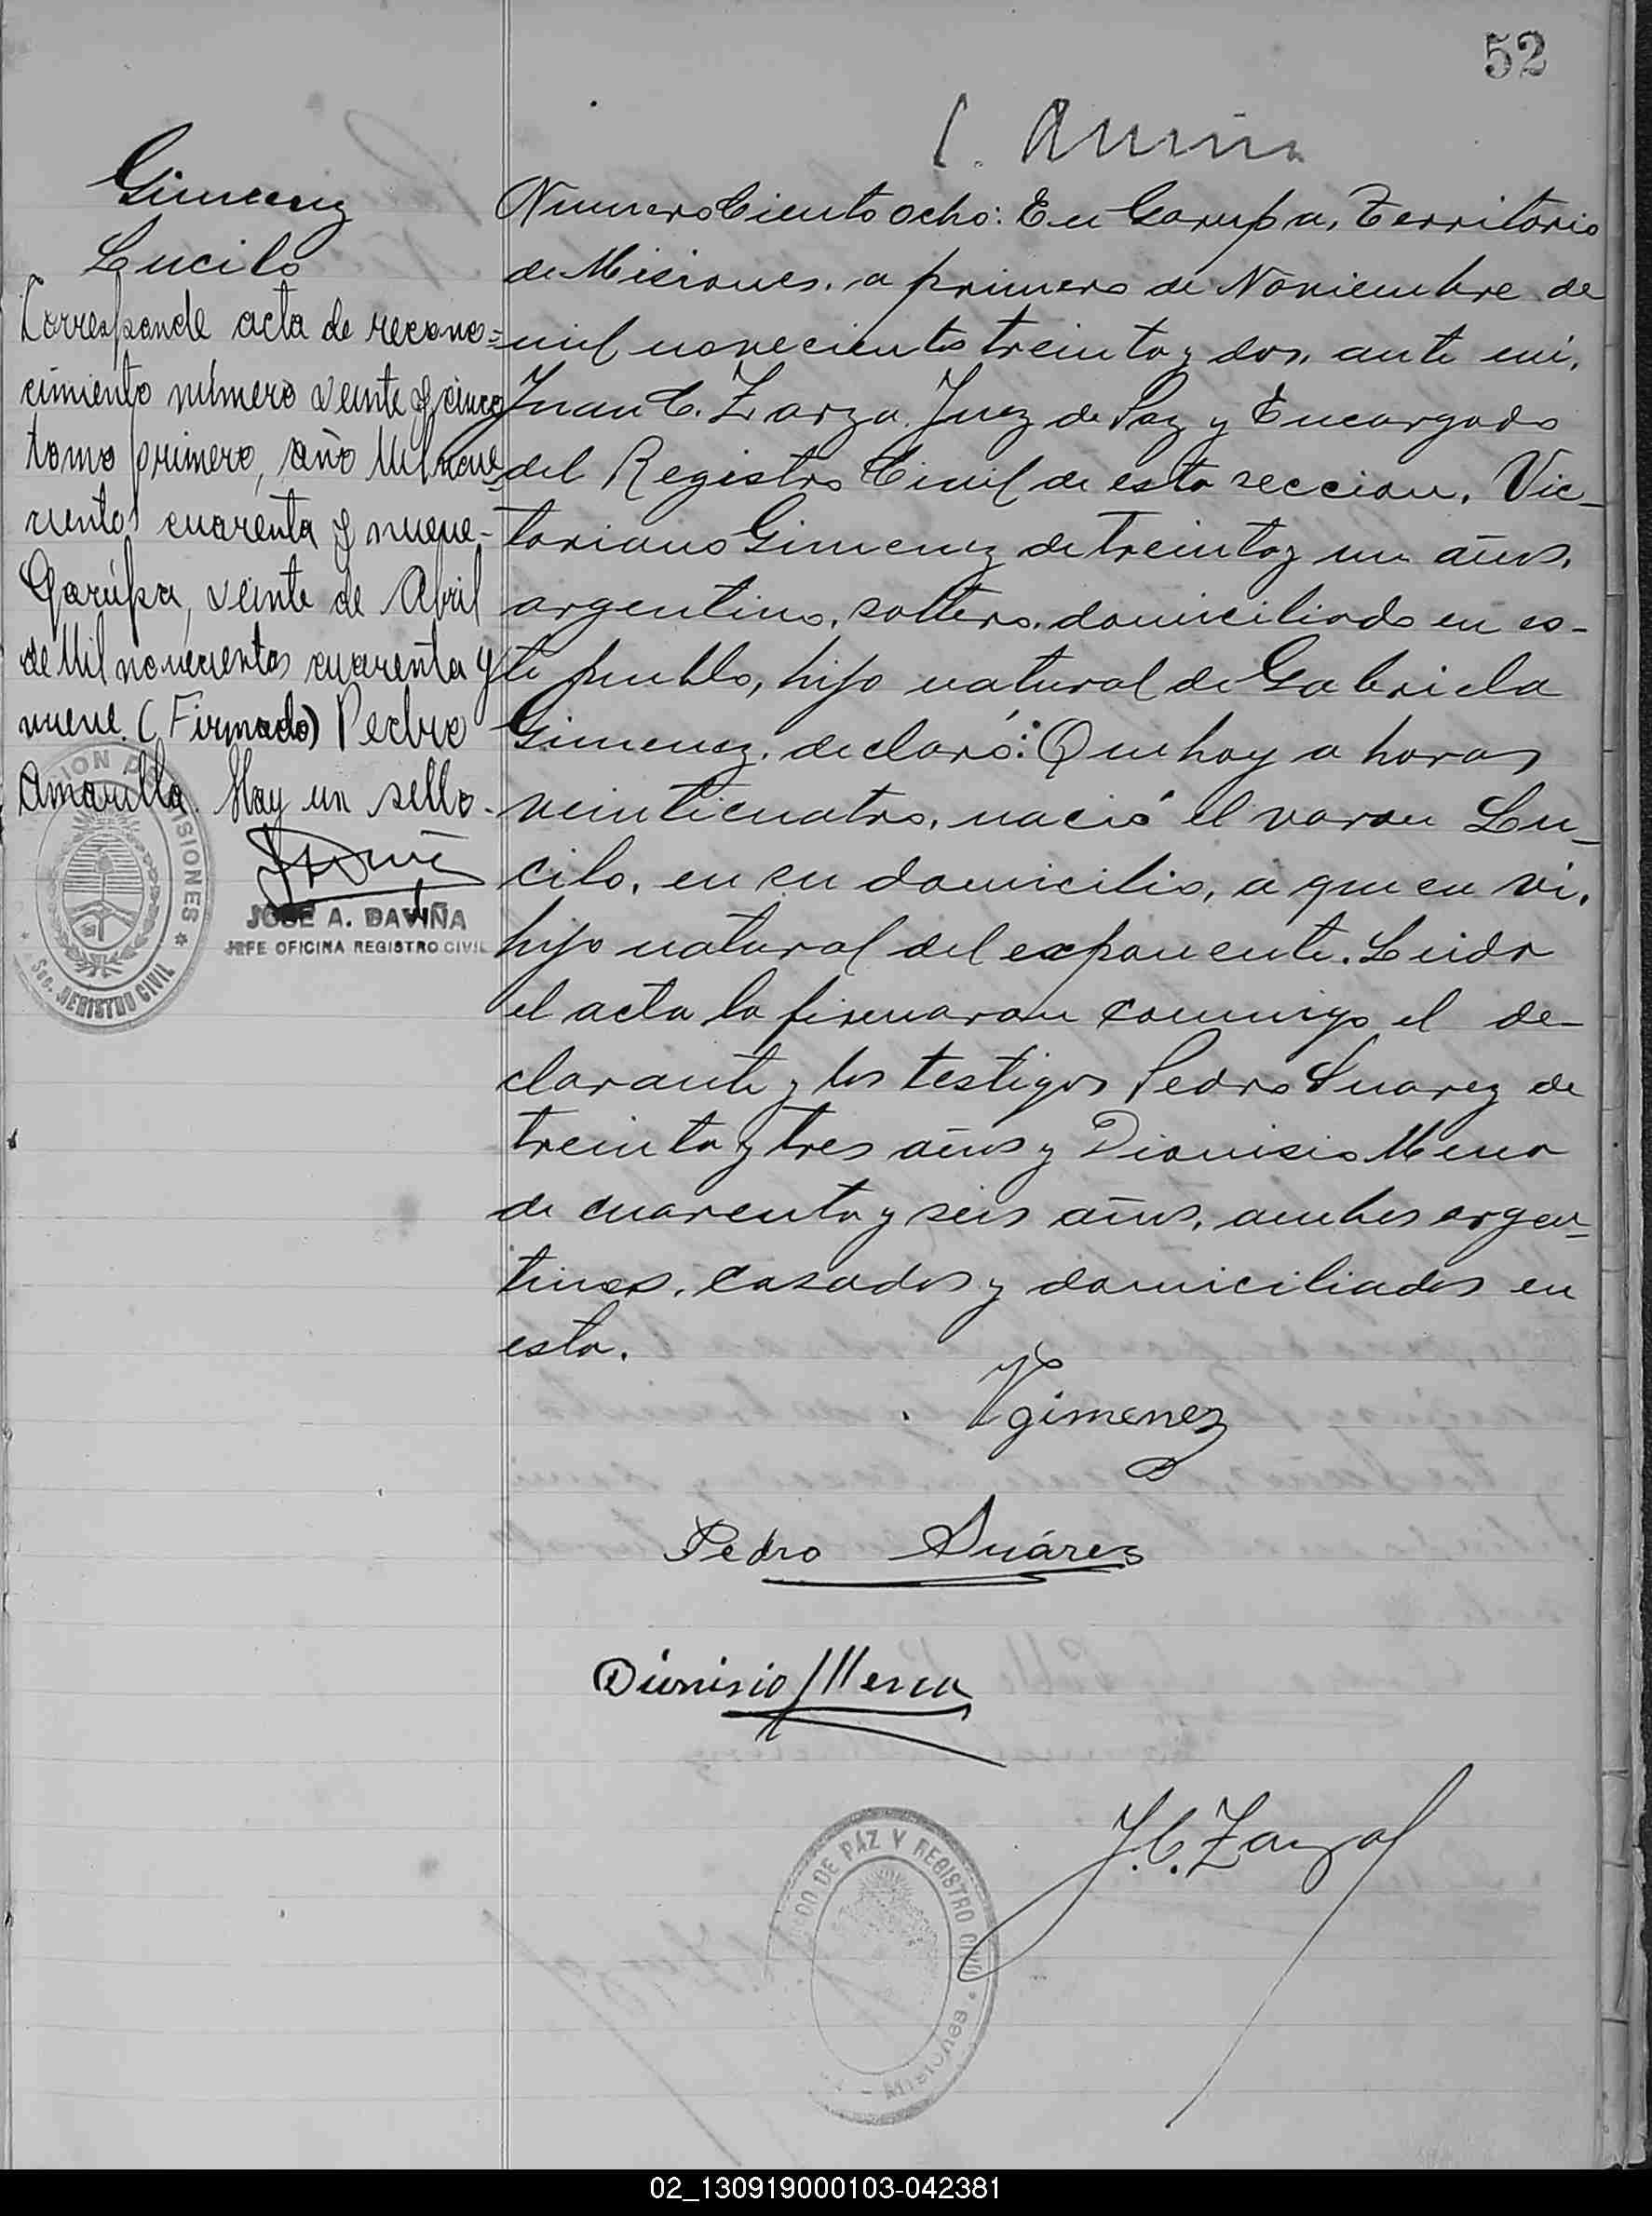 52
Gimenez
Lucilo
Corresponde acta de recono=
cimiento número veinte y cinco
tomo primero, año Mil nove=
cientos cuarenta y nueve-
Garúpa, veinte de Abril
de Mil novecientos cuarenta y
nueve. (Firmado) Pedro
Amarilla. Hay un sello-
JOSE A. DAVIÑA
JEFE OFICINA REGISTRO CIVIL
MISIONES
Sec. REGISTRO CIVIL
Numero Ciento ocho: En Garupa, Territorio
de Misiones, a primero de Noviembre de
mil novecientos treinta y dos, ante mi,
Juan C. Zarza, Juez de Paz y Encargado
del Registro Civil de esta seccion, Vic-
toriano Gimenez de treinta y un años,
argentino, soltero, domiciliado en es-
te pueblo, hijo natural de Gabriela
Gimenez, declaró: Que hoy a horas
veinticuatro, nació el varon Lu-
cilo, en su domicilio, a quien vi,
hijo natural del exponente. Leida
el acta la firmaron conmigo el de-
clarante y los testigos Pedro Suarez de
treinta y tres años y Dionisio Mena
de cuarenta y seis años, ambos argen-
tinos, casados y domiciliados en
esta.
VGimenez
Pedro Suárez
Dionisio Mena
J. C. Zarza
DE PAZ Y REGISTRO CIVIL
MISIONES
02_130919000103-042381